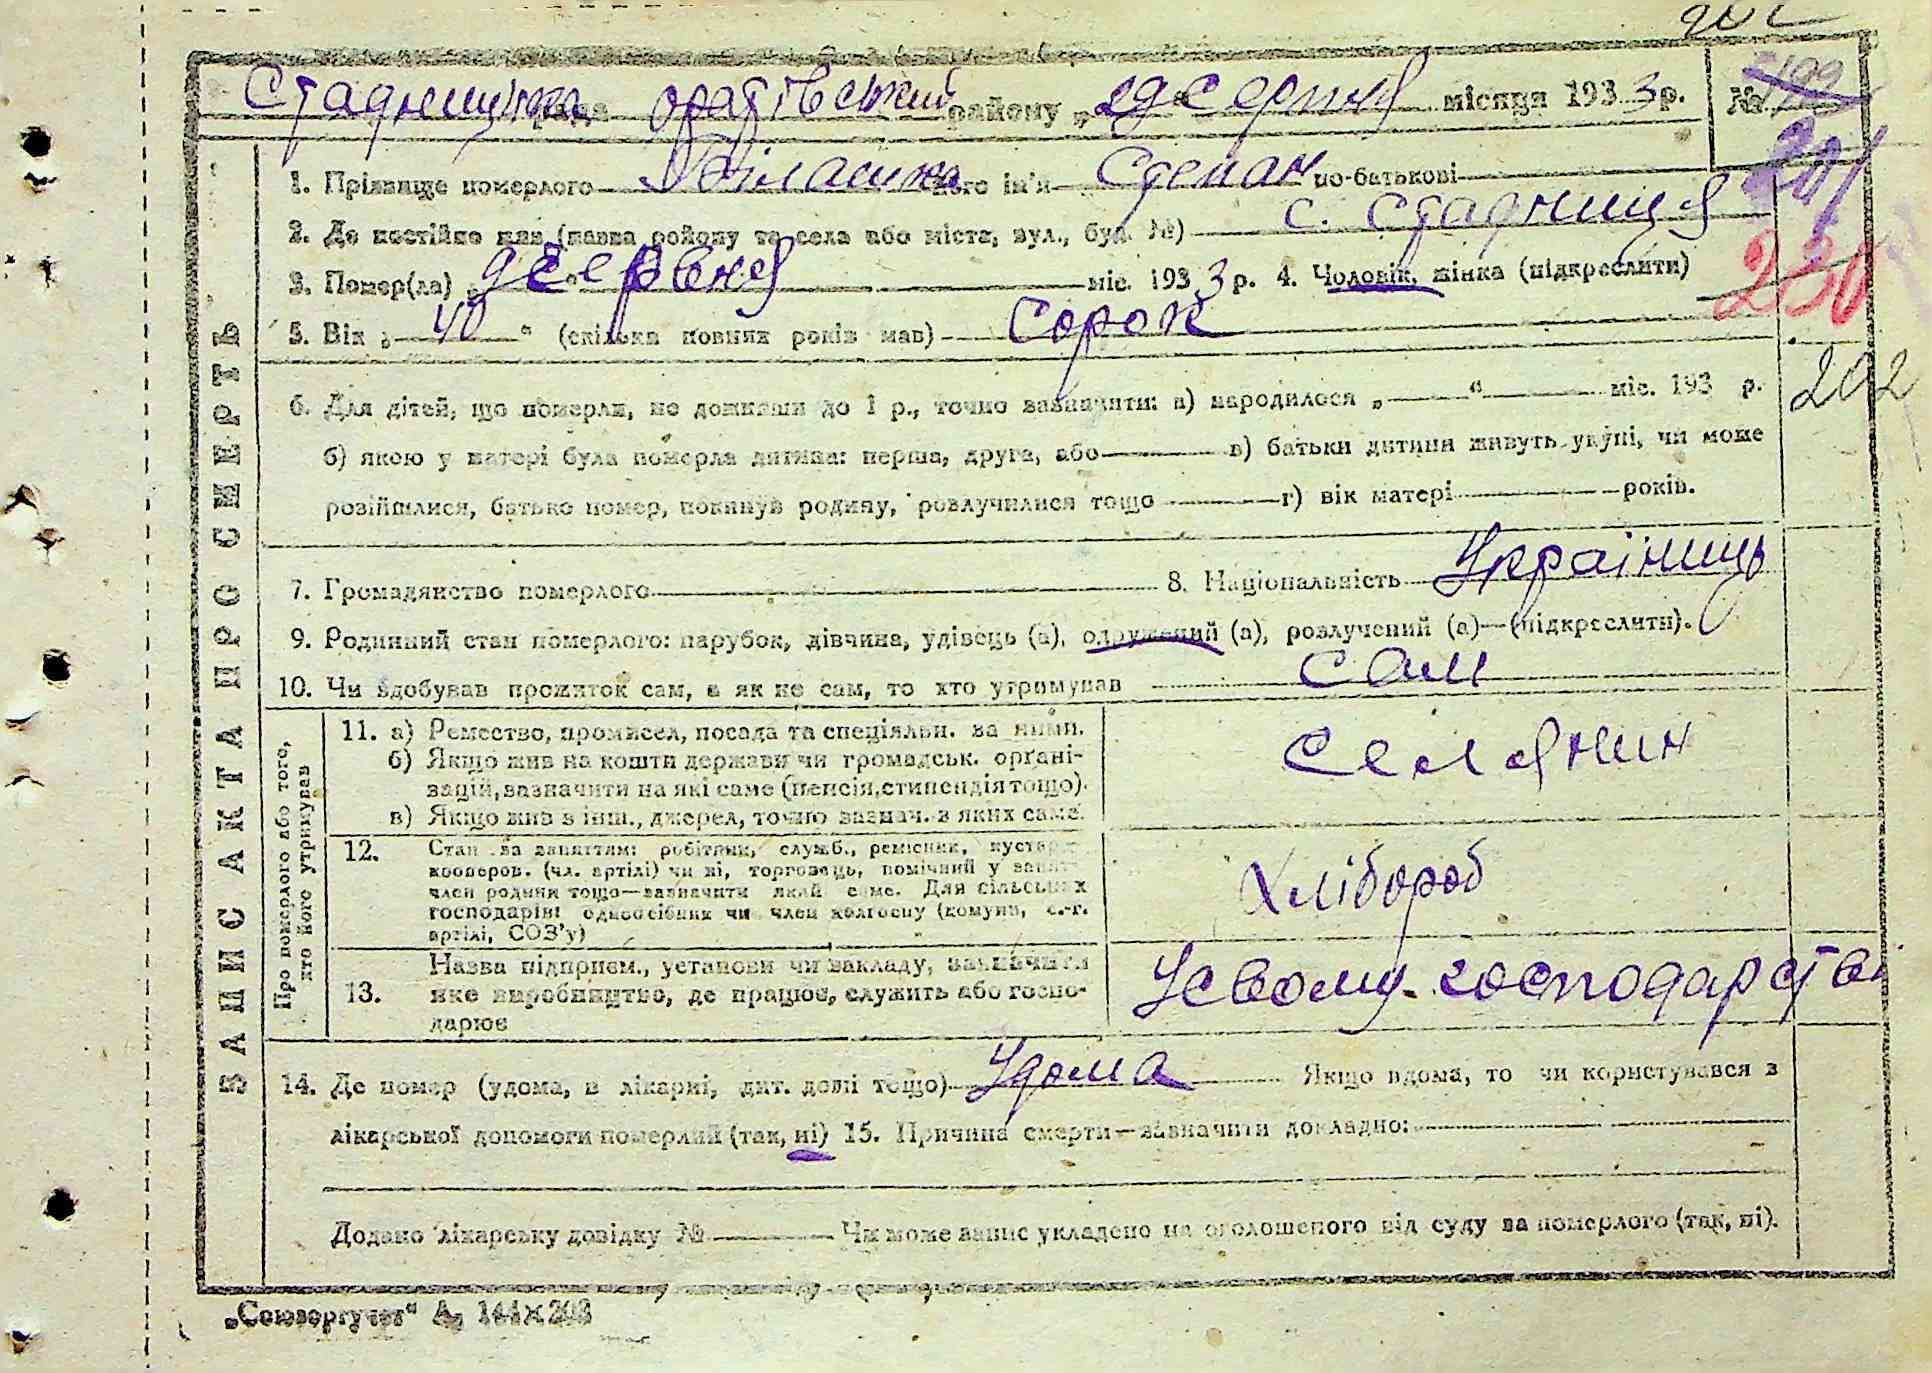 Стадницька рада Оратівський району „29 Серпня місяця 1933 р. №
201
1. Прізвище померлого його ім'я Степан по-батькові
2. Де постійно жив (назва району та села або міста, вул., буд. №) с. Стадниця
230
3. Помер(ла) червня міс. 1933 р. 4. Чоловік, жінка (підкреслити)
5. Вік „ 40 “ (скільки повних років мав) Сорок
202
6. Для дітей, що померли, не доживши до 1 р., точно зазначити: а) народилося „ “ міс. 193 р.
б) якою у матері була померла дитина: перша, друга, або в) батьки дитини живуть укупі, чи може
розійшлися, батько помер, покинув родину, розлучилися тощо г) вік матері років.
7. Громадянство померлого 8. Національність Українець
9. Родинний стан померлого: парубок, дівчина, удівець (а), одружений (а), розлучений (а)—(підкреслити).
10. Чи здобував прожиток сам, а як не сам, то хто утримував сам
ЗАПИС АКТА ПРО СМЕРТЬ
Про померлого або того,
хто його утримував
11. а) Ремество, промисел, посада та спеціяльн. за ними.
б) Якщо жив на кошти держави чи громадськ. орґані-
зацій, зазначити на які саме (пенсія, стипендія тощо).
в) Якщо жив з інш., джерел, точно зазнач. з яких саме.
Селянин
12. Стан за заняттям: робітник, служб., ремісник, кустар
кооперов. (чл. артілі) чи ні, торговець, помічний у занят.
член родини тощо—зазначити який саме. Для сільських
господарів: одноосібник чи член колгоспу (комуни, с.-г.
артілі, СОЗ'у)
Хлібороб
13. Назва підприєм., установи чи закладу, зазначити
яке виробництво, де працює, служить або госпо-
дарює
Усвому господарстві
14. Де помер (удома, в лікарні, дит. домі тощо) Удома Якщо вдома, то чи користувався з
лікарської допомоги померлий (так, ні) 15. Причина смерти—зазначити докладно:
Додано лікарську довідку № Чи може запис укладено на оголошеного від суду за померлого (так, ні).
„Союзоргучет“ А5 144×203